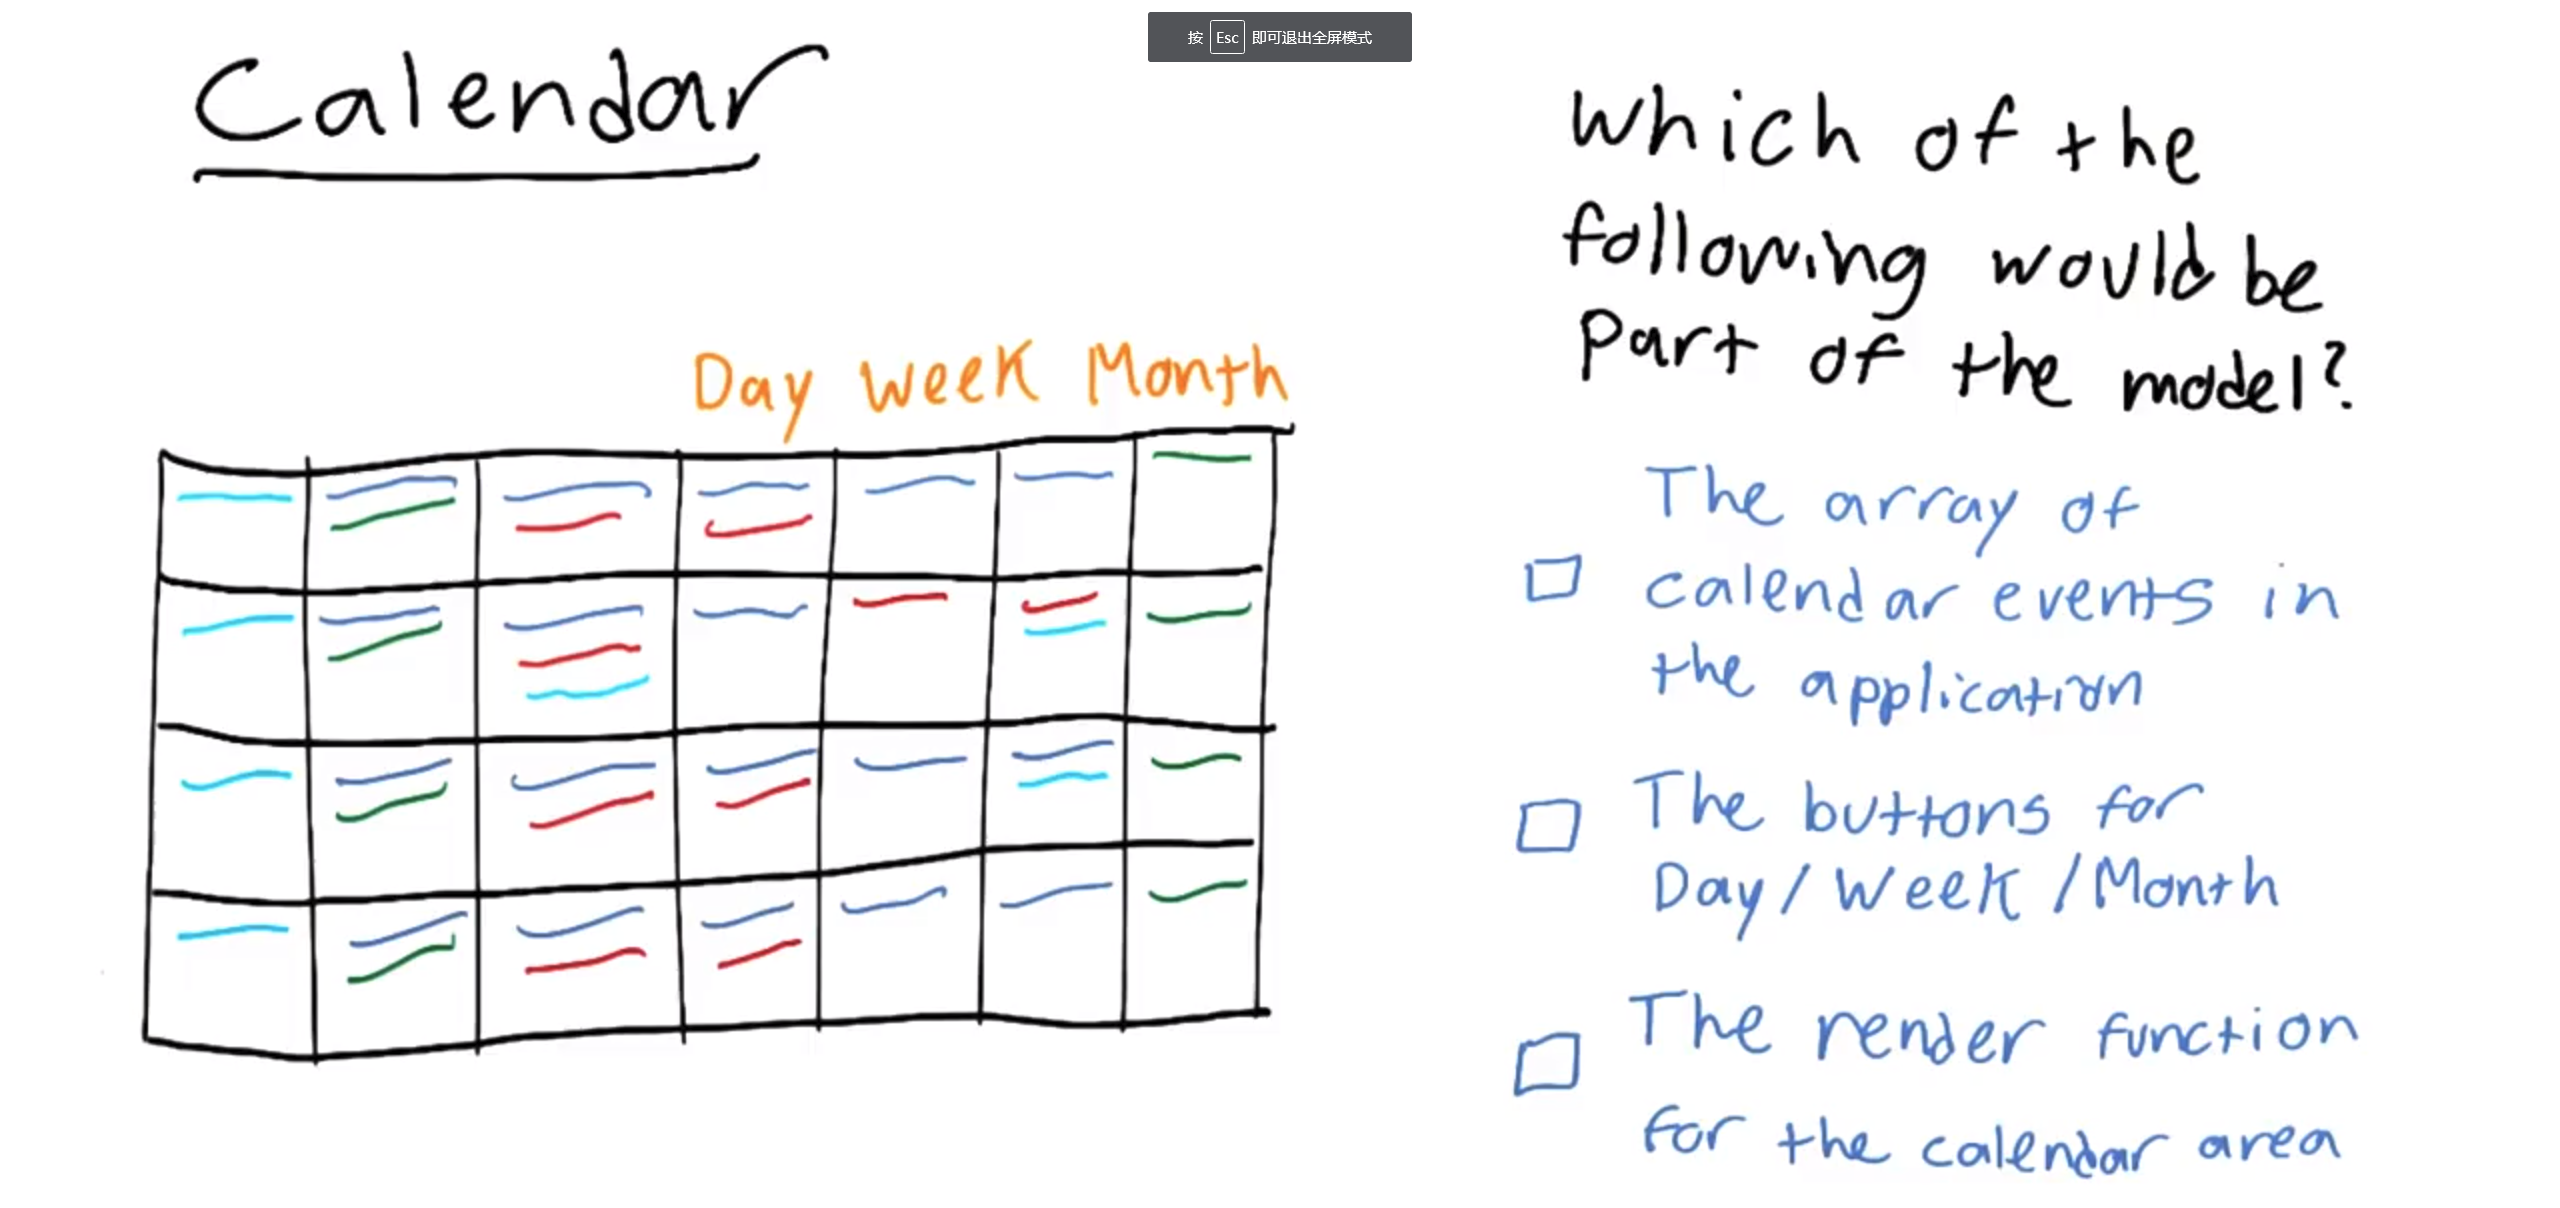 按 Esc 即可退出全屏模式
Calendar
Day Week Month
Which of the
following would be
part of the model?
The array of
calendar events in
the application
The buttons for
Day/Week/Month
The render function
for the calendar area